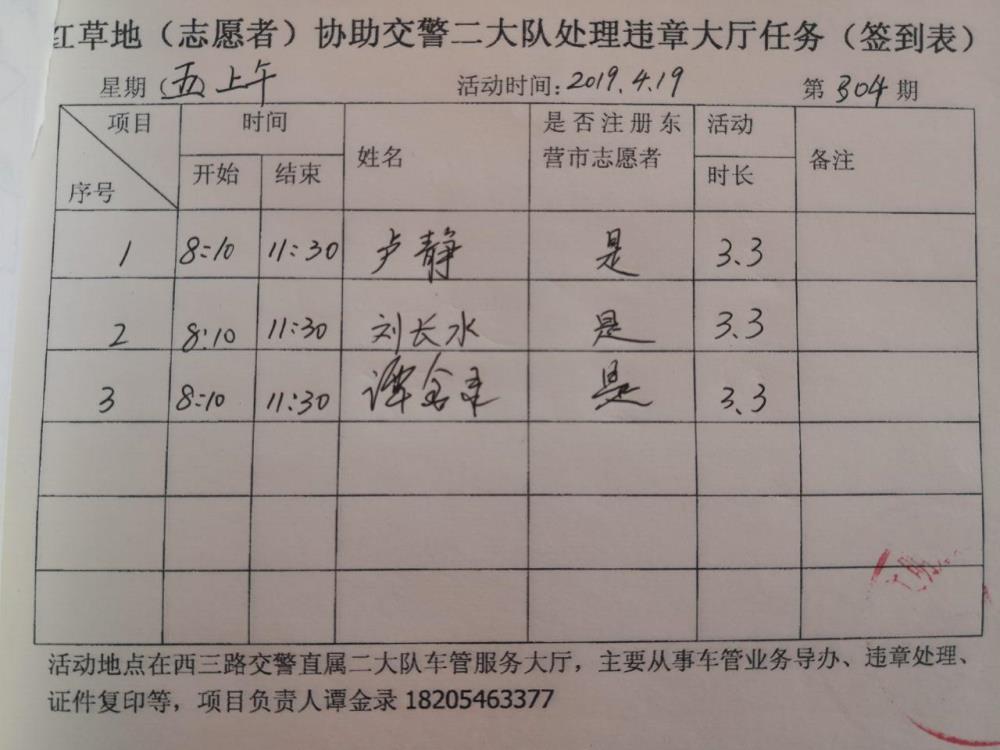 红草地（志愿者）协助交警二大队处理违章大厅任务（签到表）
星期 五上午 活动时间：2019.4.19 第 304 期
项目 时间 姓名 是否注册东营市志愿者 活动时长 备注
序号 开始 结束
1 8:10 11:30 卢静 是 3.3
2 8:10 11:30 刘长水 是 3.3
3 8:10 11:30 谭金录 是 3.3
活动地点在西三路交警直属二大队车管服务大厅，主要从事车管业务导办、违章处理、
证件复印等，项目负责人谭金录 18205463377